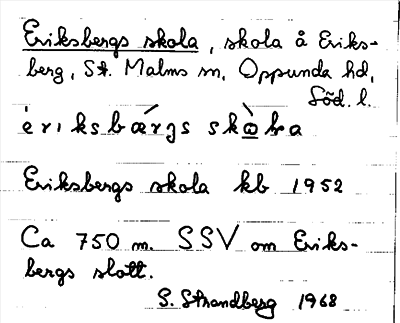 Eriksbergs skola, skola å Eriks-
berg, St. Malms sn, Oppunda hd,
Söd. l.
èriksbærgs skὼla
Eriksbergs skola kb 1952
Ca 750 m. SSV om Eriks-
bergs slott.
S. Strandberg 1968